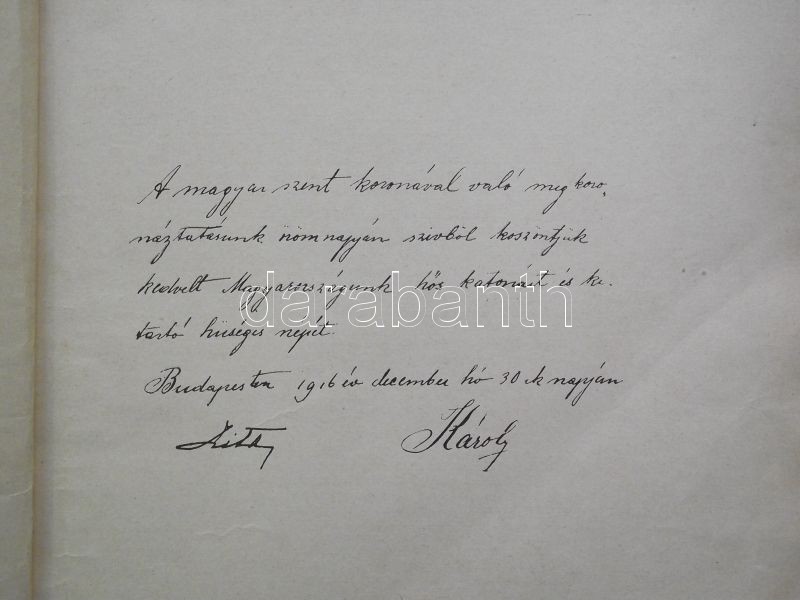 A magyar szent koronával való megkoro-
náztatásunk örömnapján szivből köszöntjük
kedvelt Magyarországunk hős katonáit és ki-
tartó hűséges népét.
Budapesten 1916 év december hó 30 ik napján
Zita Károly
darabanth